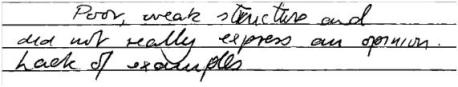 Poor, weak structure and
did not really express an opinion.
Lack of examples